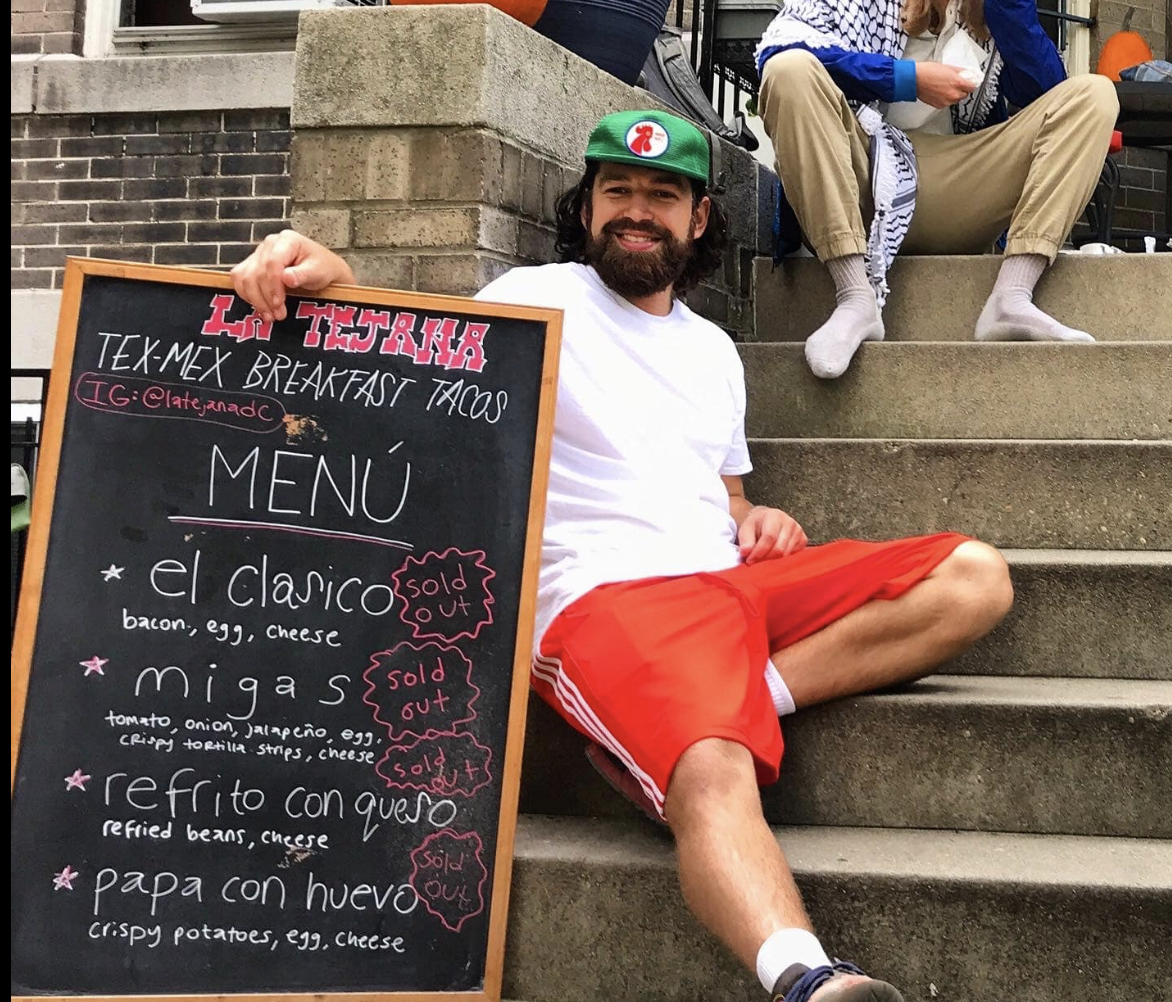 LA TEJANA
TEX-MEX BREAKFAST TACOS
IG: @latejanadc
MENÚ
el clasico
sold
out
bacon, egg, cheese
migas
sold
out
tomato, onion, jalapeño, egg,
crispy tortilla strips, cheese
sold
out
refrito con queso
refried beans, cheese
sold
out
papa con huevo
crispy potatoes, egg, cheese